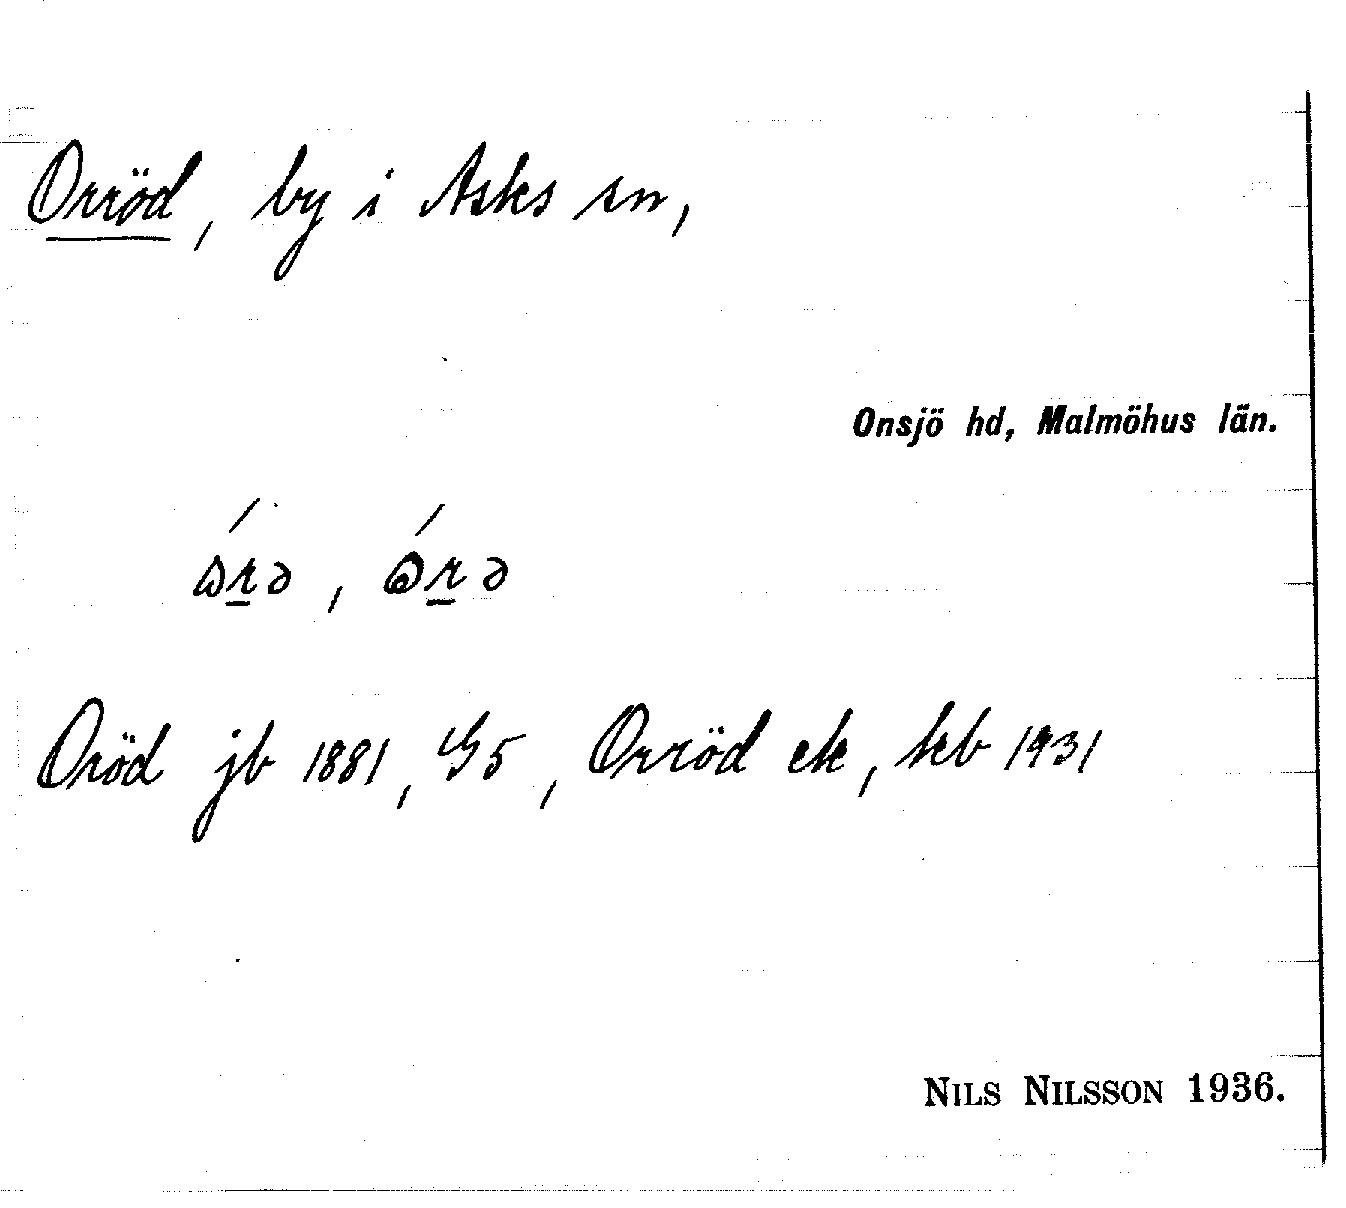 Orröd, by i Asks sn,
Onsjö hd, Malmöhus län.
Oröd jb 1881, G5, Orröd ek, kb 1931
NILS NILSSON 1936.